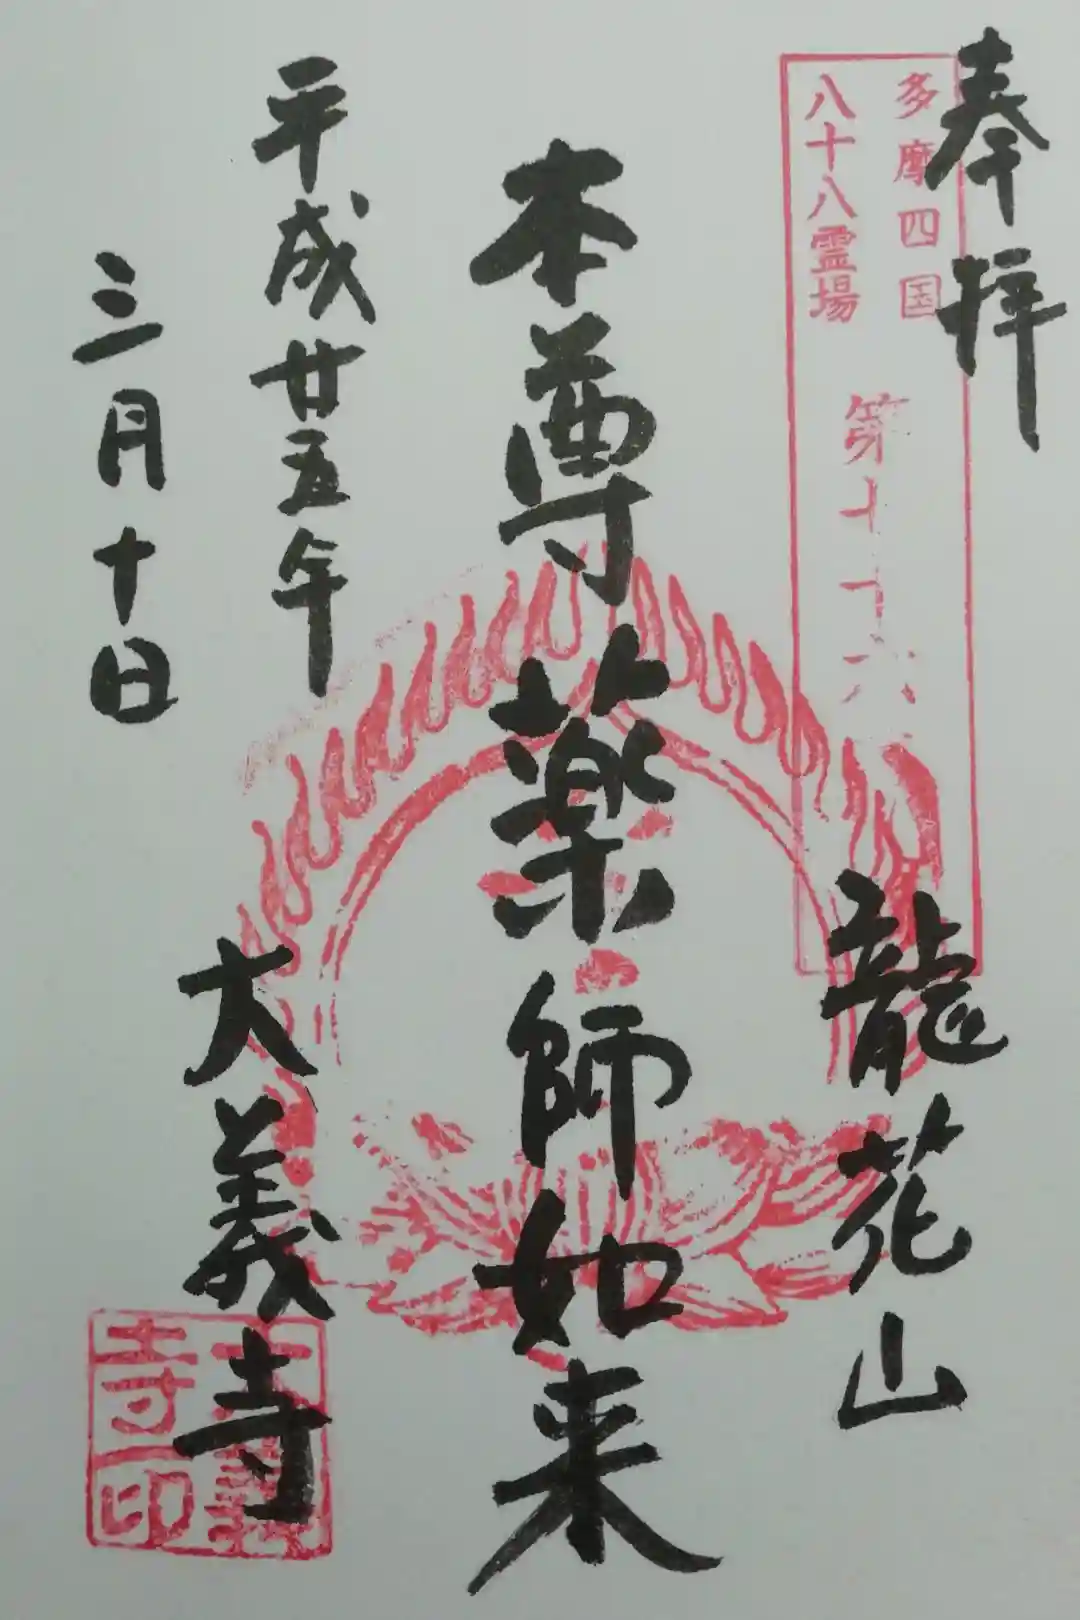 奉拝
多摩四国
八十八霊場
第
龍花山
本尊薬師如来
平成廿五年
三月十日
大義寺
大義
寺印